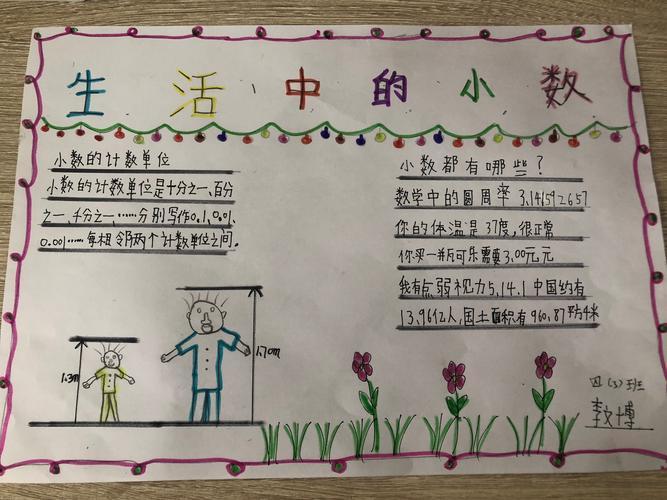 生活中的小数
小数的计数单位
小数的计数单位是十分之一、百分
之一、千分之一……分别写作0.1、0.01、
0.001……每相邻两个计数单位之间.
小数都有哪些？
数学中的圆周率 3.14159 2657
你的体温是 37度，很正常
你买一瓶可乐需要3.00元元
我有点弱视力5.1 4.1 中国约有
13.96亿人,国土面积有960.87平方千米
1.3m
1.70m
四(3)班